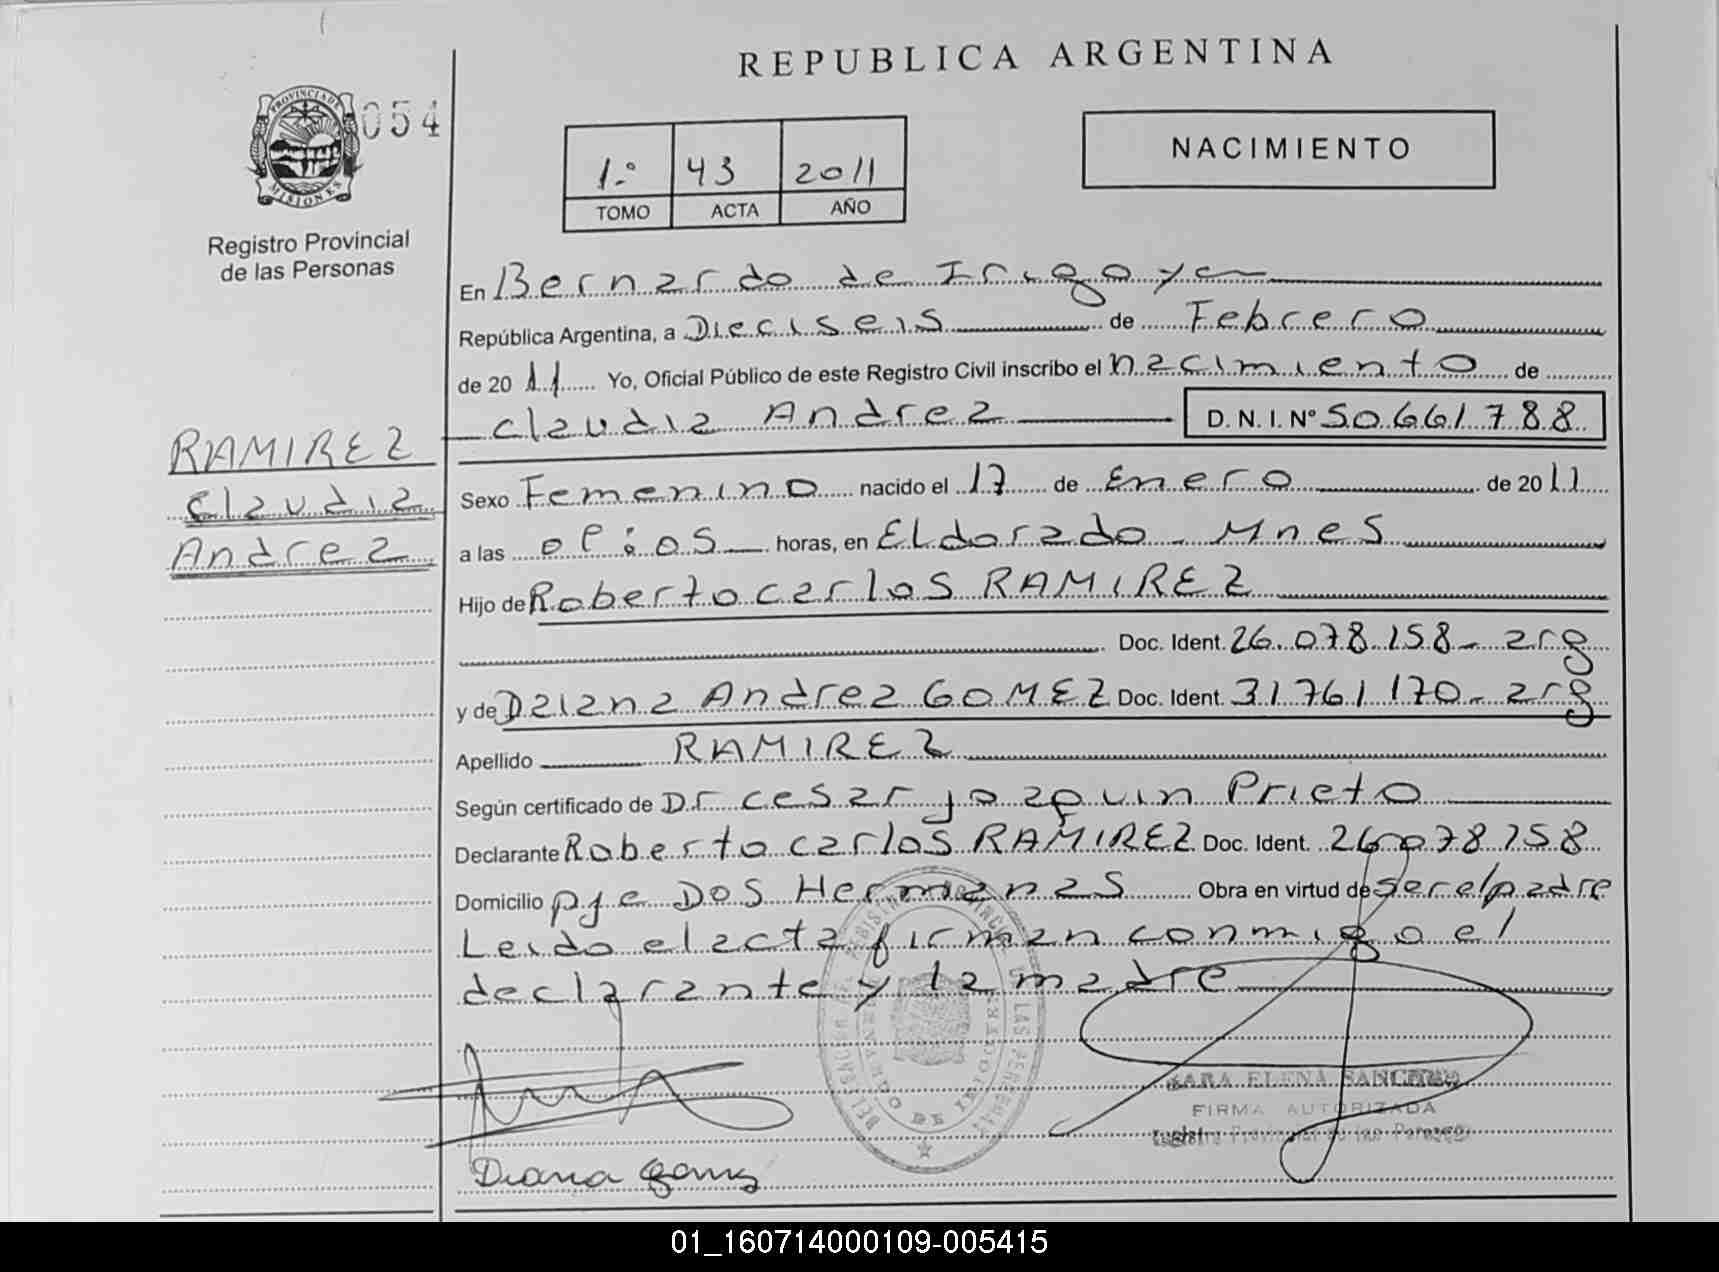 REPUBLICA ARGENTINA
PROVINCIA DE
MISIONES
054
Registro Provincial
de las Personas
1.º 43 2011
TOMO ACTA AÑO
NACIMIENTO
En Bernardo de Irigoyen
República Argentina, a Dieciseis de Febrero
de 2011 Yo, Oficial Público de este Registro Civil inscribo el nacimiento de
claudia Andrea D. N. I. Nº 50.661.788
RAMIREZ
claudia
Andrea
Sexo Femenino nacido el 17 de Enero de 2011
a las horas, en Eldorado - Mnes
Hijo de Roberto carlos RAMIREZ
Doc. Ident. 26.078.158- arg
y de Daiana Andrea GOMEZ Doc. Ident. 31.761.170- arg
Apellido RAMIREZ
Según certificado de Dr cesar joaquin Prieto
Declarante Roberto carlos RAMIREZ Doc. Ident. 26.078.158
Domicilio pje Dos Hermanas Obra en virtud de ser el padre
Leido el acta firman conmigo el
declarante y la madre
SARA ELENA
FIRMA AUTORIZADA
Registro Provincial de las Personas
01_160714000109-005415